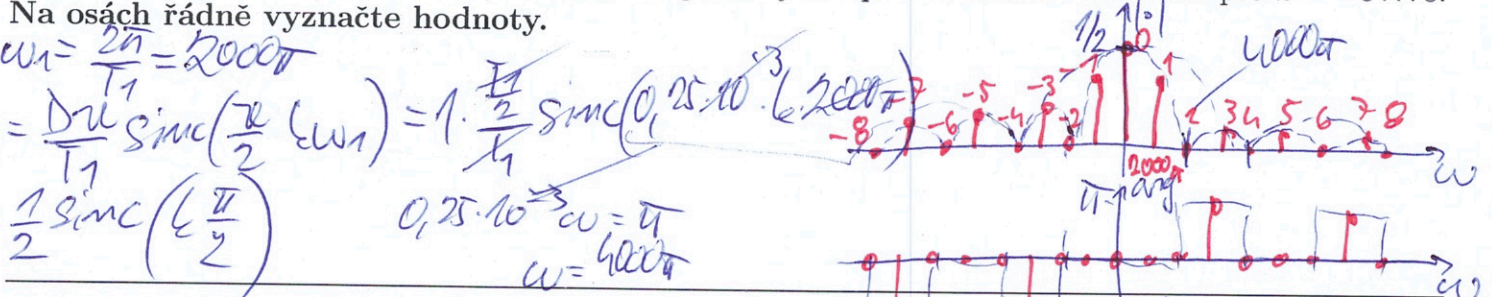 Na osách řádně vyznačte hodnoty.
ω1 = 2π/T1 = 2000π
= Dϑ/T1 sinc(ϑ/2 kω1) = 1 · (T1/2)/T1 sinc(0,25·10^-3 · k · 2000π)
1/2 sinc(k π/2)
0,25·10^-3 ω = π
ω = 4000π
1/2 |·|
4000π
-8 -7 -6 -5 -4 -3 -2 -1 0 1 2 3 4 5 6 7 8
2000π
ω
π arg
ω